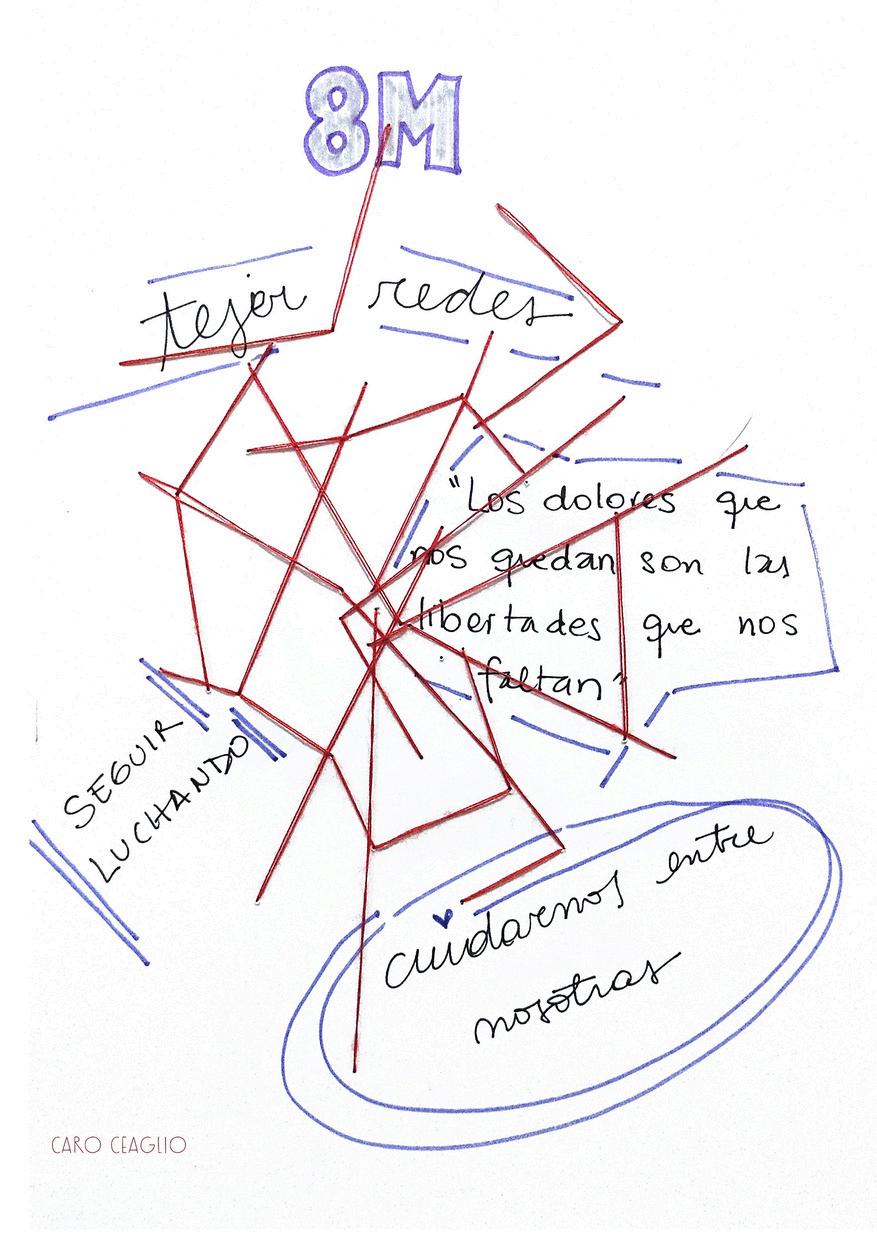 8M
tejer redes
"Los dolores que
nos quedan son las
libertades que nos
faltan"
SEGUIR
LUCHANDO
cuidarnos entre
nosotras
CARO CEAGLIO